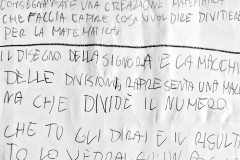 CONSEGNA: FATE UNA CREAZIONE MATEMATICA
CHE FACCIA CAPIRE COSA VUOL DIRE DIVIDERE
PER LA MATEMATICA
IL DISEGNO DELLA SIGNORA È LA MACCHI
DELLE DIVISIONI, RAPPRESENTA UNA MACCHI
NA CHE DIVIDE IL NUMERO
CHE TU GLI DIRAI E IL RISULT
TO LO VEDRAI SU UN